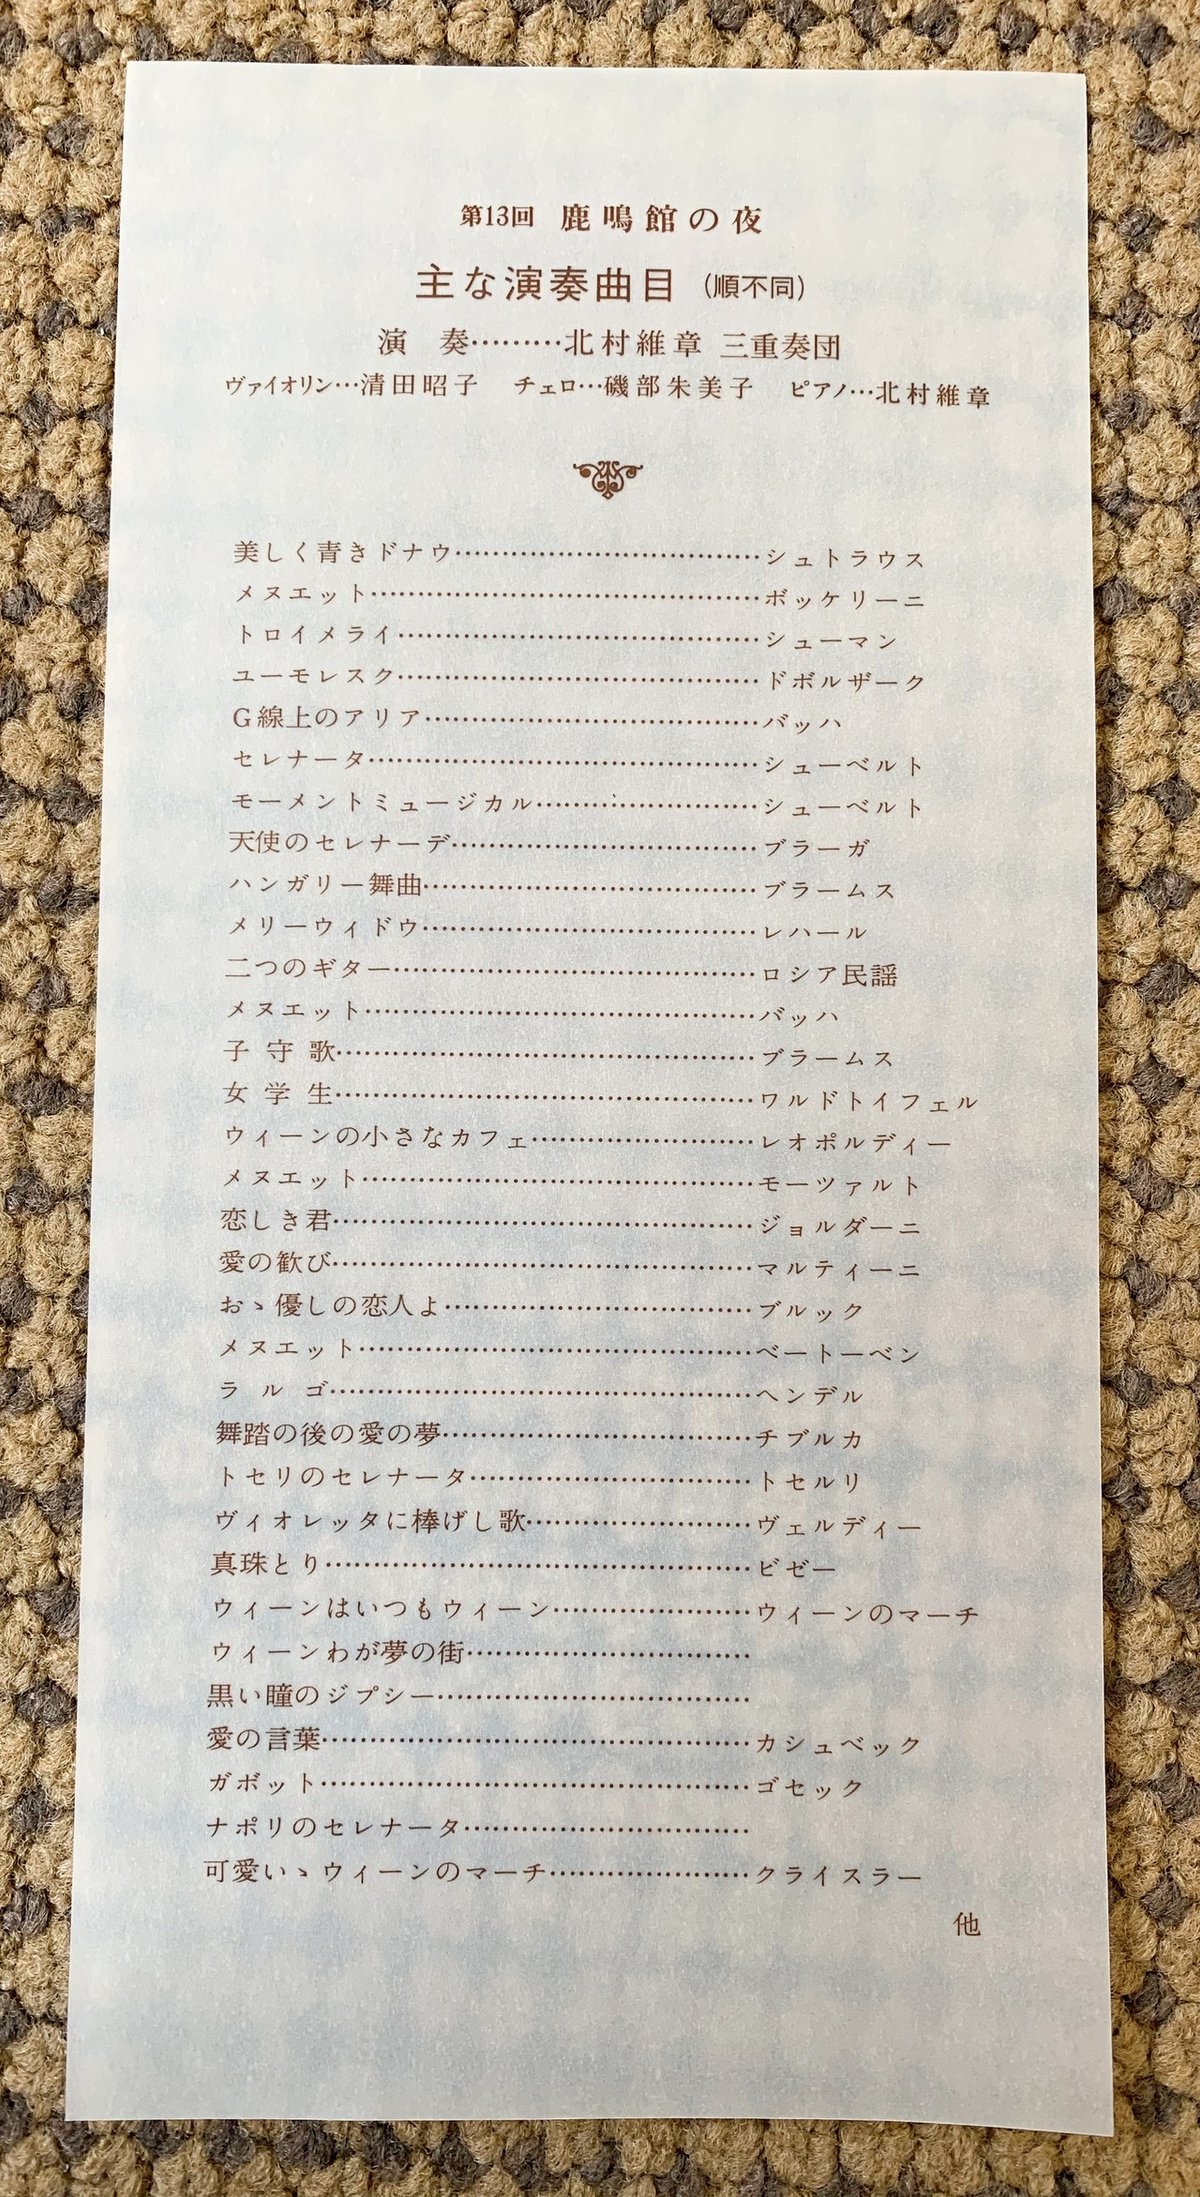 第13回 鹿鳴館の夜
主な演奏曲目 (順不同)
演 奏………北村維章 三重奏団
ヴァイオリン…清田昭子 チェロ…磯部朱美子 ピアノ…北村維章
美しく青きドナウ……………………………シュトラウス
メヌエット……………………………………ボッケリーニ
トロイメライ…………………………………シューマン
ユーモレスク…………………………………ドボルザーク
G線上のアリア………………………………バッハ
セレナータ……………………………………シューベルト
モーメントミュージカル……………………シューベルト
天使のセレナーデ……………………………ブラーガ
ハンガリー舞曲………………………………ブラームス
メリーウィドウ………………………………レハール
二つのギター…………………………………ロシア民謡
メヌエット……………………………………バッハ
子 守 歌………………………………………ブラームス
女 学 生………………………………………ワルドトイフェル
ウィーンの小さなカフェ……………………レオポルディー
メヌエット……………………………………モーツァルト
恋しき君………………………………………ジョルダーニ
愛の歓び………………………………………マルティーニ
おゝ優しの恋人よ……………………………ブルック
メヌエット……………………………………ベートーベン
ラ ル ゴ………………………………………ヘンデル
舞踏の後の愛の夢……………………………チブルカ
トセリのセレナータ…………………………トセルリ
ヴィオレッタに棒げし歌……………………ヴェルディー
真珠とり………………………………………ビゼー
ウィーンはいつもウィーン…………………ウィーンのマーチ
ウィーンわが夢の街…………………………
黒い瞳のジプシー……………………………
愛の言葉………………………………………カシュベック
ガボット………………………………………ゴセック
ナポリのセレナータ…………………………
可愛いゝウィーンのマーチ…………………クライスラー
他